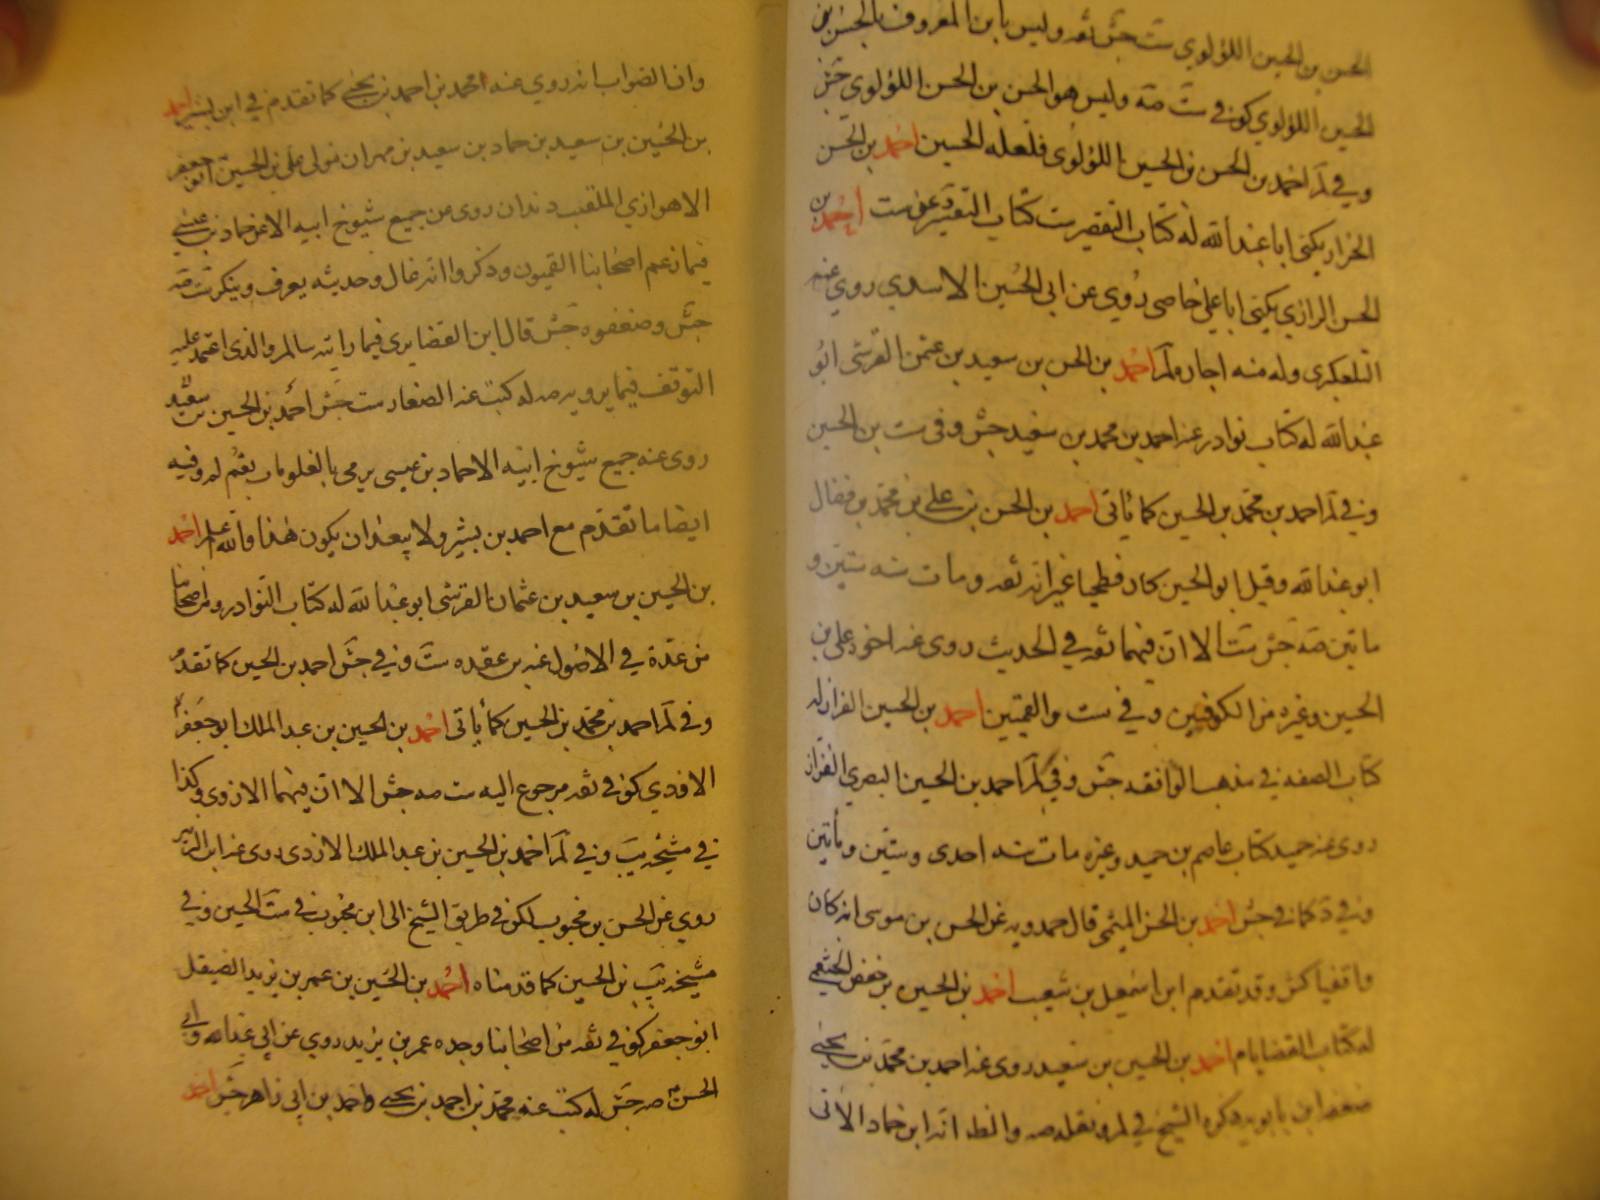 الحسن بن الحسين اللؤلوي ست جش ثقه وليس بابن المعروف بالحسن بن
الحسين اللؤلوي كوفي ست صه وليس هو الحسن بن الحسن اللؤلوي جش
وفي لم احمد بن الحسن بن الحسين اللؤلوى فلعله الحسين احمد بن الحسن
الخزاز يكنى ابا عبد الله له كتاب التفسير ست احمد بن
الحسن الرازي يكنى ابا علي خاصي روي عن ابي الحسين الاسدي روي عنه
التلعكبرى وله منه اجازه لم احمد بن الحسن بن سعيد بن عثمن القرشى ابو
عبد الله له كتاب نوادر عنه احمد بن محمد بن سعيد جش وفي ست بن الحسين
وفي لم احمد بن محمد بن الحسين كما ياتي احمد بن الحسن بن علي بن محمد بن فضال
ابو عبد الله وقيل ابو الحسين كان فطحيا غير انه ثقه ومات سنه ستين و
ماتين صه جش ست الا ان فيهما ثقه في الحديث روى عنه اخوه علي بن
الحسين وغيره من الكوفيين وفي ست والقميين احمد بن الحسين القزاز له
كتاب الصفه في مذهب الواقفه جش وفي لم احمد بن الحسين البصري القزاز
روى عنه حميد كتاب عاصم بن حميد وغيره مات سنه احدى وستين ومأتين
وفي د كما في جش احمد بن الحسن الميثمي قال حمدويه عن الحسن بن موسى انه كان
واقفيا كش وقد تقدم ابن اسمعيل بن شعيب احمد بن الحسين بن حفص الخثعمي
له كتاب القضايا م احمد بن الحسين بن سعيد روى عنه احمد بن محمد بن يحيى
ضعفه ابن بابويه ذكره الشيخ في لم ونقله صه والظ انه ابن حماد الاتى
وان الصواب انه روي عنه محمد بن احمد بن يحيى كما تقدم في ابن بشير احمد
بن الحسين بن سعيد بن حماد بن سعيد بن مهران مولى علي بن الحسين ابو جعفر
الاهوازي الملقب دندان روى عن جميع شيوخ ابيه الا عن حماد بن عيسى
فيما زعم اصحابنا القميون وذكروا انه غال وحديثه يعرف وينكر ست صه
جش وضعفوه جش قال ابن الغضايري فيما رايته سالم والذى اعتمد عليه
التوقف فيما يرويه صه له كتب عنه الصفار ست جش احمد بن الحسين بن سعيد
روى عنه جميع شيوخ ابيه الا حماد بن عيسى يرمى بالغلو مات بقم لم وفيه
ايضا ما تقدم مع احمد بن بشير ولا يبعد ان يكون هذا والله اعلم احمد
بن الحسين بن سعيد بن عثمان القرشي ابو عبد الله له كتاب النوادر ومن اصحابنا
من عده في الاصول عنه بن عقده ست وفي جش احمد بن الحسين كما تقدم
وفي لم احمد بن محمد بن الحسين كما ياتى احمد بن الحسين بن عبد الملك ابو جعفر
الاودي كوفي ثقه مرجوع اليه ست صه جش الا ان فيهما الازدى وكذا
في مشيخه يب وفي لم احمد بن الحسين بن عبد الملك الازدى روى عنه ابن الزبير
روي عن الحسن بن محبوب لكن في طريق الشيخ الى ابن محبوب في ست الحسين وفي
مشيخه يب بن الحسين كما قدمناه احمد بن الحسين بن عمر بن يزيد الصيقل
ابو جعفر كوفي ثقه من اصحابنا وجده عمر بن يزيد روي عن ابي عبد الله وابي
الحسن صه جش له كتب عنه محمد بن احمد بن يحيى واحمد بن ابي زاهر جش احمد